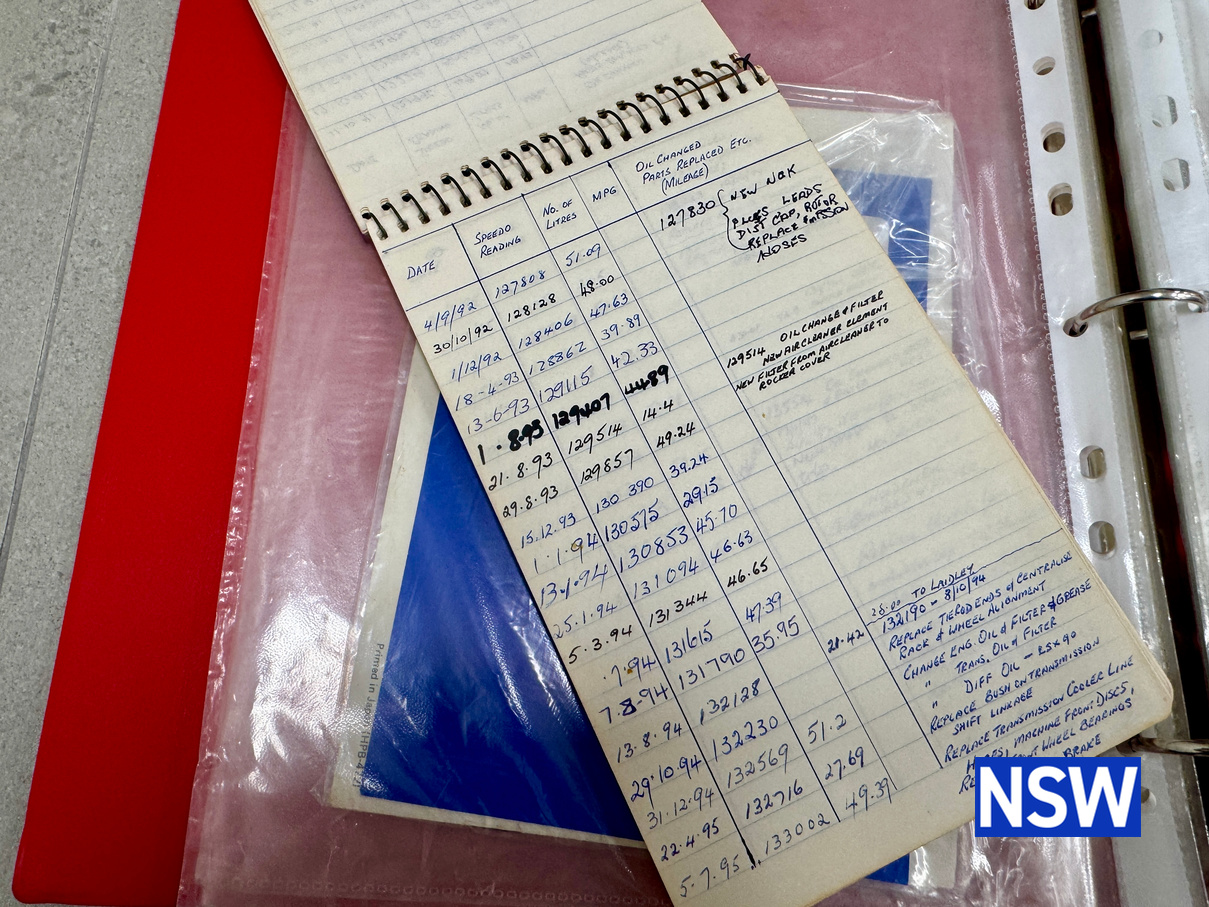 DATE SPEEDO READING NO. OF LITRES MPG OIL CHANGED PARTS REPLACED ETC. (MILEAGE)
4/9/92 127808 51.09 127830 NEW NGK
PLUGS LEADS
DIST CAP, ROTOR
REPLACE EMISSON
HOSES
30/10/92 128128 48.00
1/12/92 128406 47.63
18-4-93 128862 39.89
13-6-93 129115 42.33
1.8.93 129407 44.89
21.8.93 129514 14.4 129514 OIL CHANGE & FILTER
NEW AIR CLEANER ELEMENT
NEW FILTER FROM AIRCLEANER TO
ROCKER COVER
29.8.93 129857 49.24
15.12.93 130390 39.24
1.1.94 130515 29.15
13.1.94 130853 45.70
25.1.94 131094 46.63
5.3.94 131344 46.65
7.94 131615 47.39
7.8.94 131790 35.95
13.8.94 132128 TO LAIDLEY
132190 - 8/10/94
29.10.94 132230
31.12.94 132569 51.2
22.4.95 132716 27.69
5.7.95 133002 49.39
REPLACE TIE ROD ENDS & CENTRALISE
RACK & WHEEL ALIGNMENT
CHANGE ENG. OIL & FILTER & GREASE
" TRANS. OIL & FILTER
" DIFF OIL - 85X90
REPLACE BUSH ON TRANSMISSION
SHIFT LINKAGE
REPLACE TRANSMISSION COOLER LINE
HOSES, MACHINE FRONT DISCS,
WHEEL BEARINGS
BRAKE
Printed in Japan
NSW